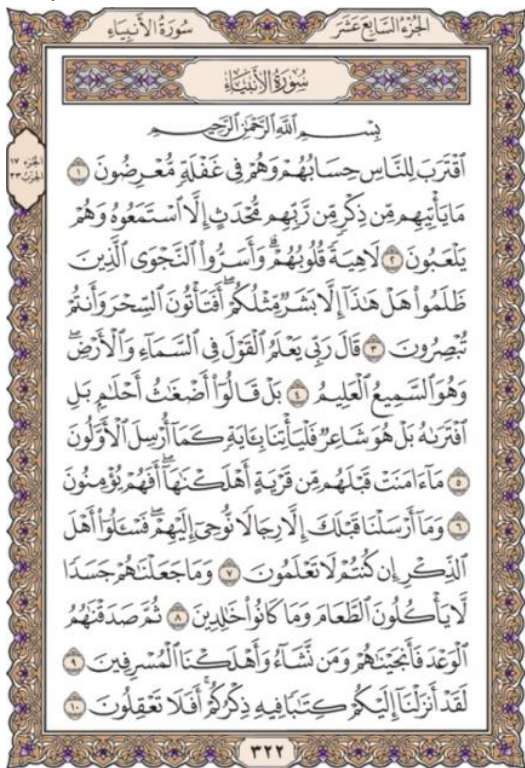 الجُزْءُ السَّابِعَ عَشَرَ سُورَةُ الأَنبِيَاءِ
سُورَةُ الأَنبِيَاءِ
بِسْمِ ٱللَّهِ ٱلرَّحْمَٰنِ ٱلرَّحِيمِ
الجزء ١٧
الحزب ٣٣
ٱقْتَرَبَ لِلنَّاسِ حِسَابُهُمْ وَهُمْ فِى غَفْلَةٍ مُّعْرِضُونَ ١
مَا يَأْتِيهِم مِّن ذِكْرٍ مِّن رَّبِّهِم مُّحْدَثٍ إِلَّا ٱسْتَمَعُوهُ وَهُمْ
يَلْعَبُونَ ٢ لَاهِيَةً قُلُوبُهُمْ ۗ وَأَسَرُّوا۟ ٱلنَّجْوَى ٱلَّذِينَ
ظَلَمُوا۟ هَلْ هَٰذَآ إِلَّا بَشَرٌ مِّثْلُكُمْ ۖ أَفَتَأْتُونَ ٱلسِّحْرَ وَأَنتُمْ
تُبْصِرُونَ ٣ قَالَ رَبِّى يَعْلَمُ ٱلْقَوْلَ فِى ٱلسَّمَآءِ وَٱلْأَرْضِ ۖ
وَهُوَ ٱلسَّمِيعُ ٱلْعَلِيمُ ٤ بَلْ قَالُوٓا۟ أَضْغَٰثُ أَحْلَٰمٍۭ بَلِ
ٱفْتَرَىٰهُ بَلْ هُوَ شَاعِرٌ فَلْيَأْتِنَا بِـَٔايَةٍ كَمَآ أُرْسِلَ ٱلْأَوَّلُونَ
٥ مَآ ءَامَنَتْ قَبْلَهُم مِّن قَرْيَةٍ أَهْلَكْنَٰهَآ ۖ أَفَهُمْ يُؤْمِنُونَ
٦ وَمَآ أَرْسَلْنَا قَبْلَكَ إِلَّا رِجَالًا نُّوحِىٓ إِلَيْهِمْ ۖ فَسْـَٔلُوٓا۟ أَهْلَ
ٱلذِّكْرِ إِن كُنتُمْ لَا تَعْلَمُونَ ٧ وَمَا جَعَلْنَٰهُمْ جَسَدًا
لَّا يَأْكُلُونَ ٱلطَّعَامَ وَمَا كَانُوا۟ خَٰلِدِينَ ٨ ثُمَّ صَدَقْنَٰهُمُ
ٱلْوَعْدَ فَأَنجَيْنَٰهُمْ وَمَن نَّشَآءُ وَأَهْلَكْنَا ٱلْمُسْرِفِينَ ٩
لَقَدْ أَنزَلْنَآ إِلَيْكُمْ كِتَٰبًا فِيهِ ذِكْرُكُمْ ۖ أَفَلَا تَعْقِلُونَ ١٠
٣٢٢